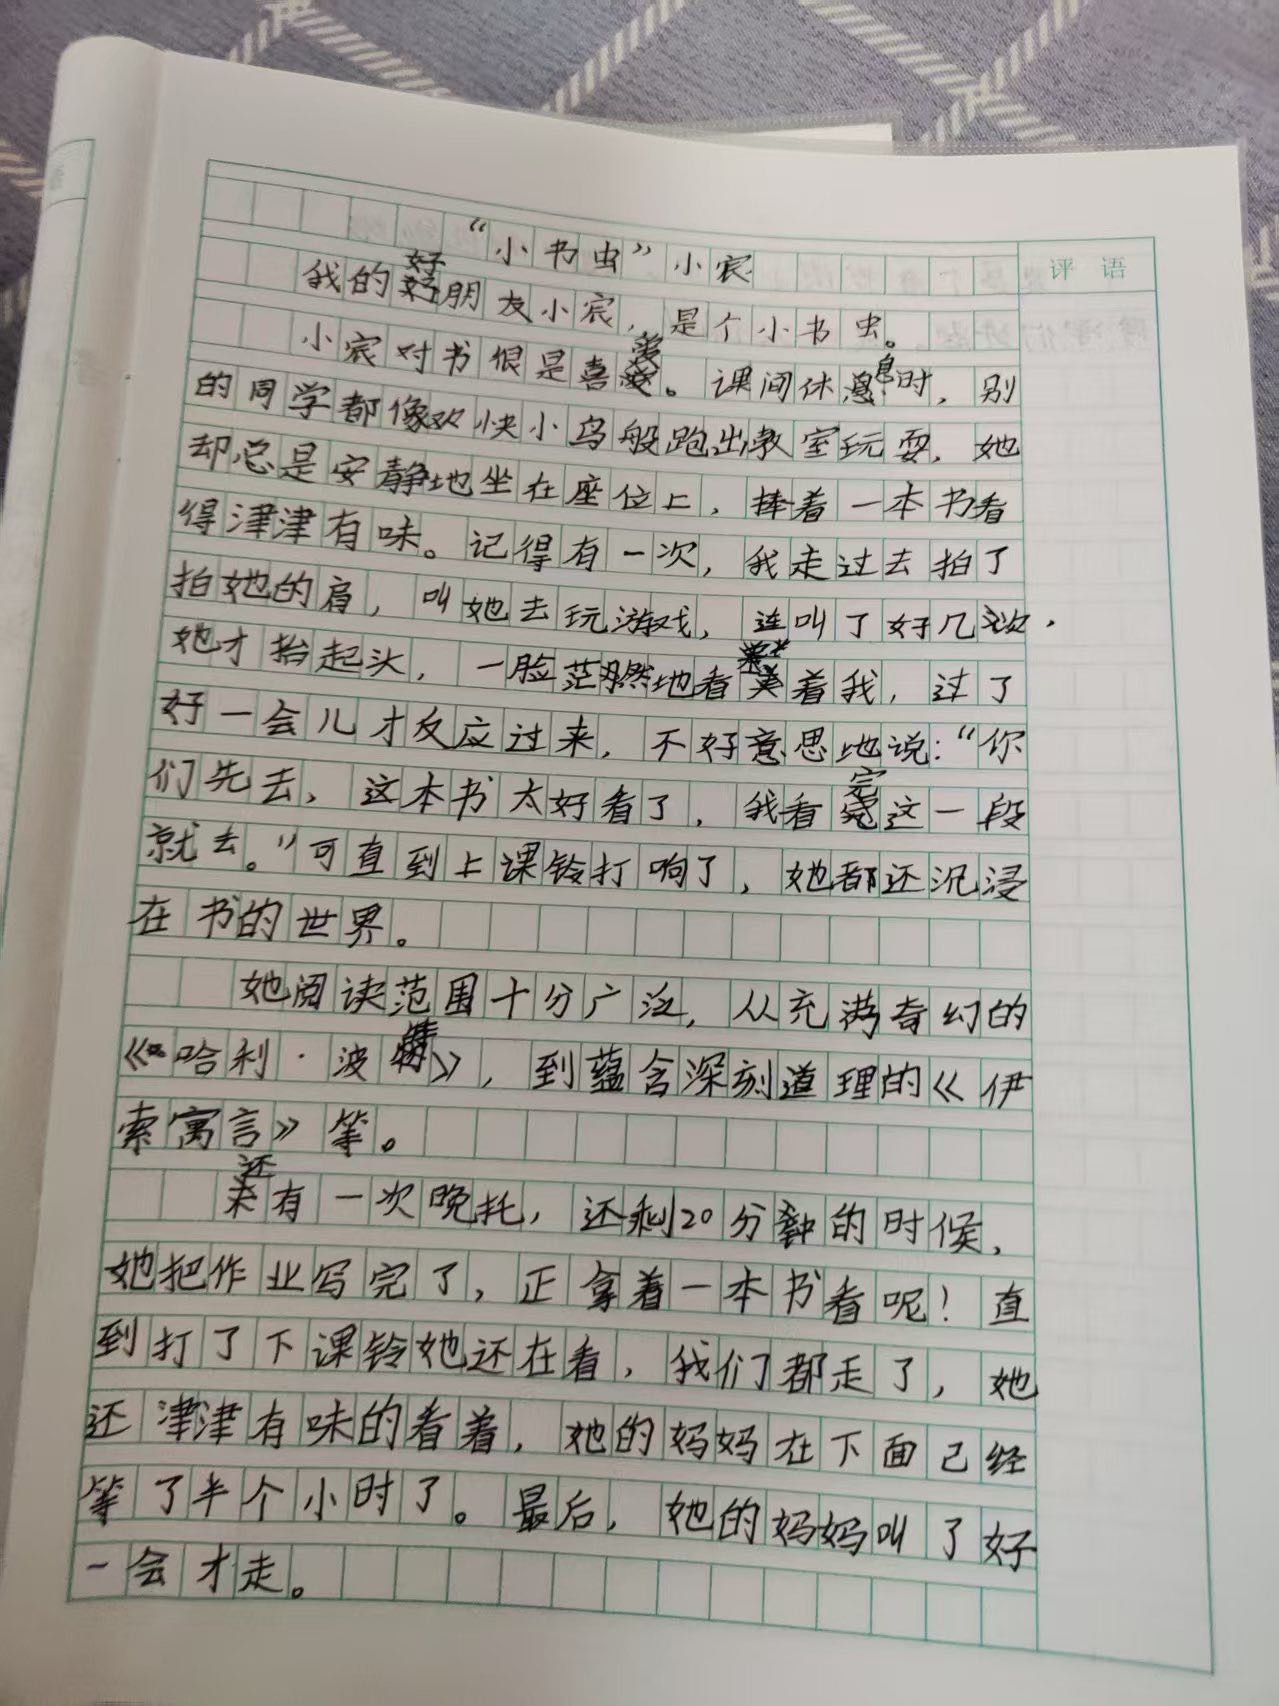 “小书虫”小宸
评 语
我的好朋友小宸,是个小书虫。
小宸对书很是喜爱。课间休息时,别
的同学都像欢快小鸟般跑出教室玩耍,她
却总是安静地坐在座位上,捧着一本书看
得津津有味。记得有一次,我走过去拍了
拍她的肩,叫她去玩游戏,连叫了好几次,
她才抬起头,一脸茫然地看着我,过了
好一会儿才反应过来,不好意思地说:“你
们先去,这本书太好看了,我看完这一段
就去。”可直到上课铃打响了,她都还沉浸
在书的世界。
她阅读范围十分广泛,从充满奇幻的
《哈利·波特》,到蕴含深刻道理的《伊
索寓言》等。
还有一次晚托,还剩20分钟的时候,
她把作业写完了,正拿着一本书看呢!直
到打了下课铃她还在看,我们都走了,她
还津津有味的看着,她的妈妈在下面已经
等了半个小时了。最后,她的妈妈叫了好
一会才走。